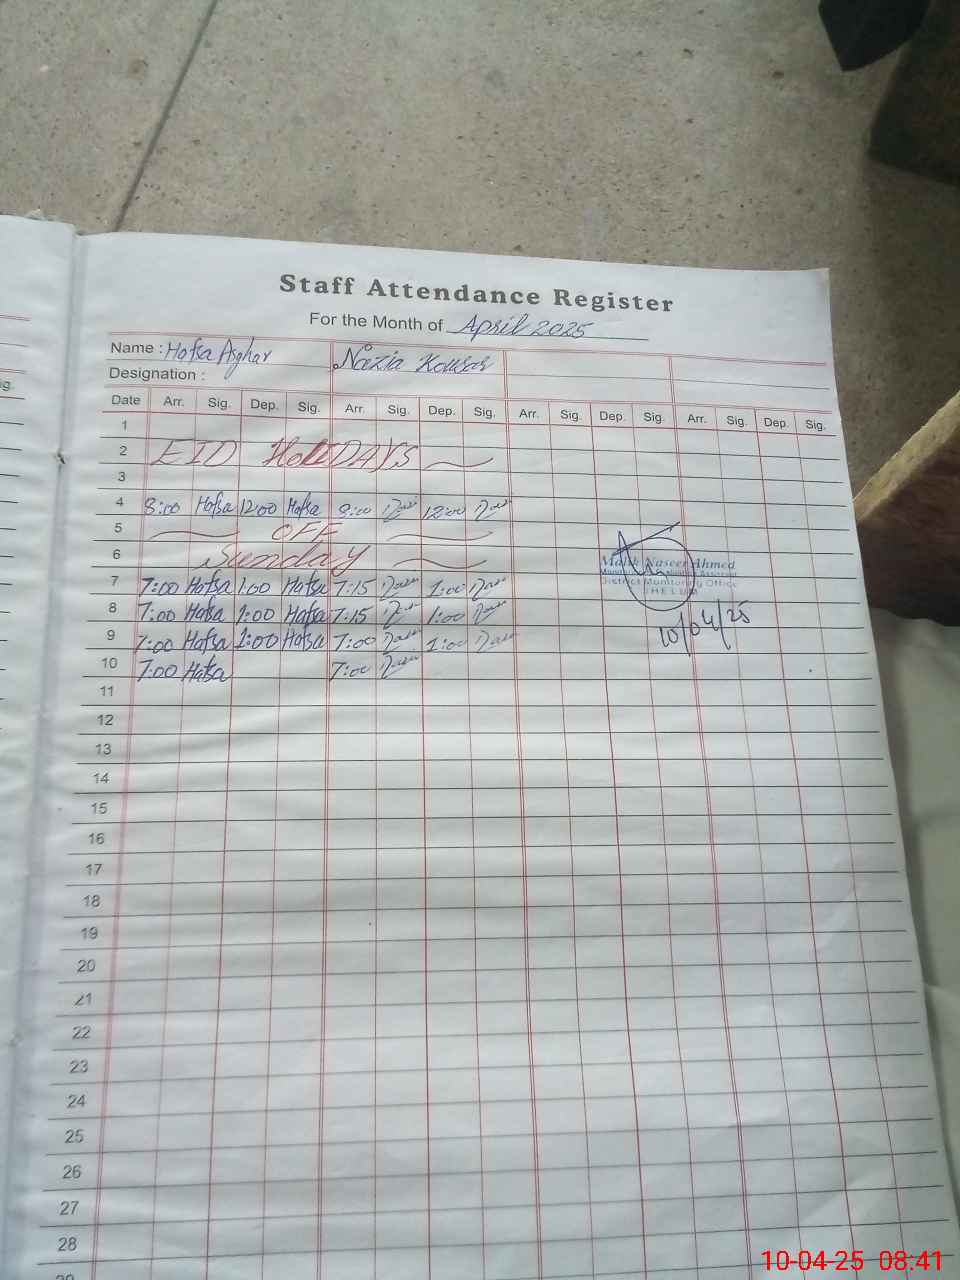 ig.
Staff Attendance Register
For the Month of April 2025
Name : Hafsa Asghar Nazia Kousar
Designation :
Date Arr. Sig. Dep. Sig. Arr. Sig. Dep. Sig. Arr. Sig. Dep. Sig. Arr. Sig. Dep. Sig.
1
2 EID HoliDAYS
3
4 8:00 Hafsa 12:00 Hafsa 8:00 12:00
5 OFF
6 Sunday
Malik Naseer Ahmed
District Monitoring Office
JHELUM
7 7:00 Hafsa 1:00 Hafsa 7:15 1:00
8 7:00 Hafsa 1:00 Hafsa 7:15 1:00
10/04/25
9 7:00 Hafsa 1:00 Hafsa 7:00 1:00
10 7:00 Hafsa 7:00
11
12
13
14
15
16
17
18
19
20
21
22
23
24
25
26
27
28
29
10-04-25 08:41